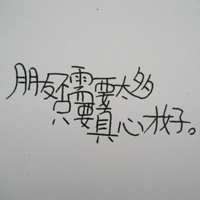 朋友不需要太多
只要真心就好。